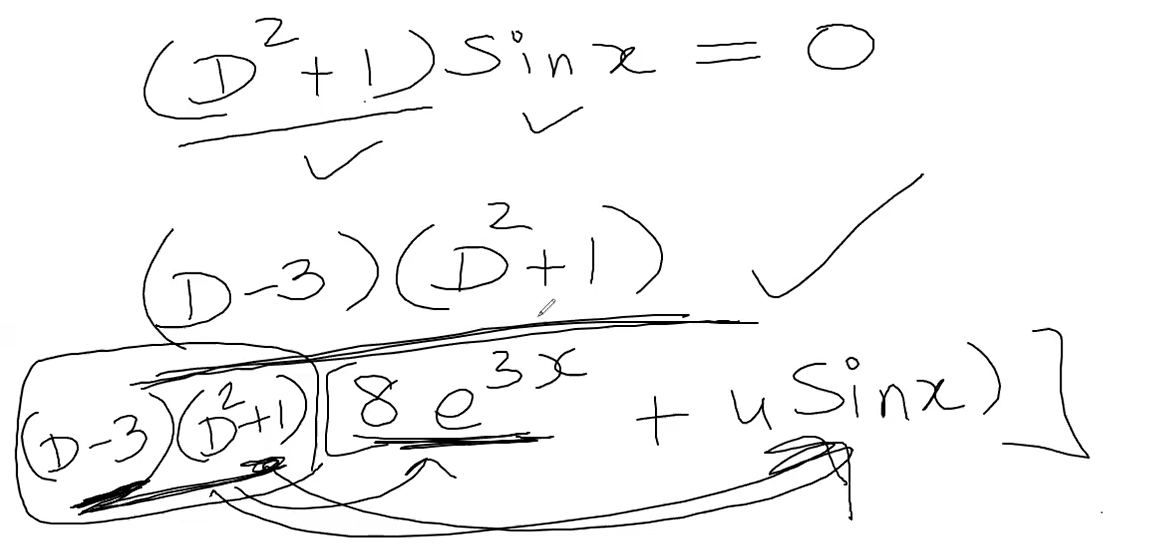 (D²+1) Sinx = 0
(D-3)(D²+1)
(D-3)(D²+1)[8e³ˣ + 4Sinx)]